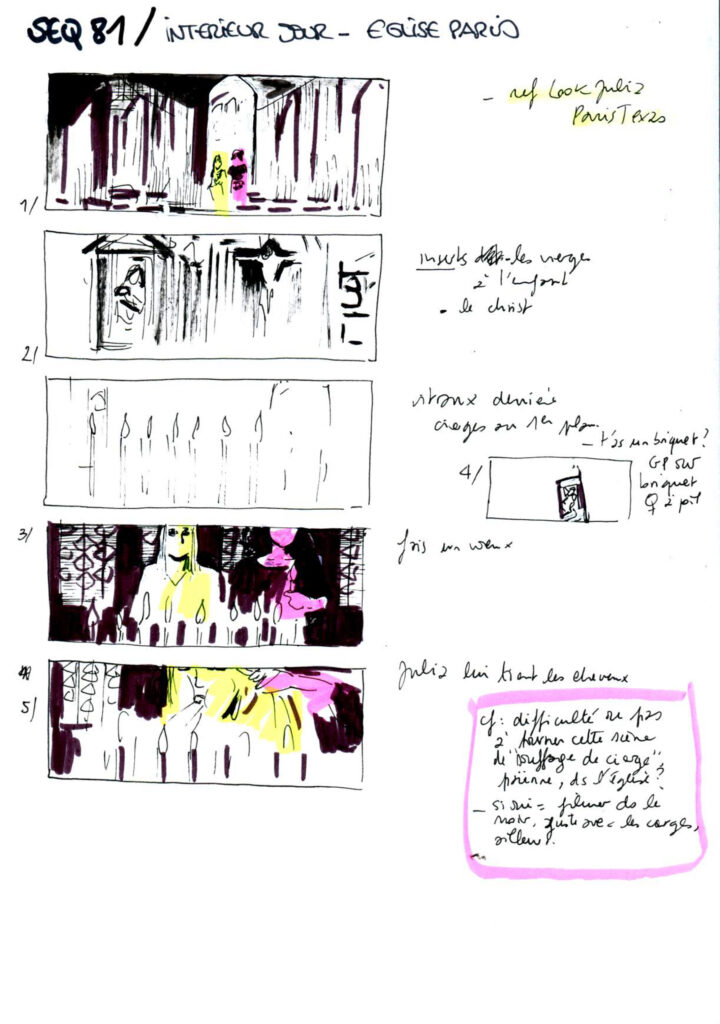 SEQ 81 / INTERIEUR JOUR - EGLISE PARIS
- ref Look Julia
Paris Texas
1/
inserts - les vierges
à l'enfant
• le christ
2/
vitraux derrière
cierges au 1er plan
- t'as un briquet?
4/
GP sur
briquet
à poil
3/
fais un vœux
Julia lui tient les cheveux
5/
cf: difficulté ou pas
à tourner cette scène
de "soufflage de cierge",
ds l'église?
- si oui = filmer ds le
noir, juste avec les cierges,
ailleurs.